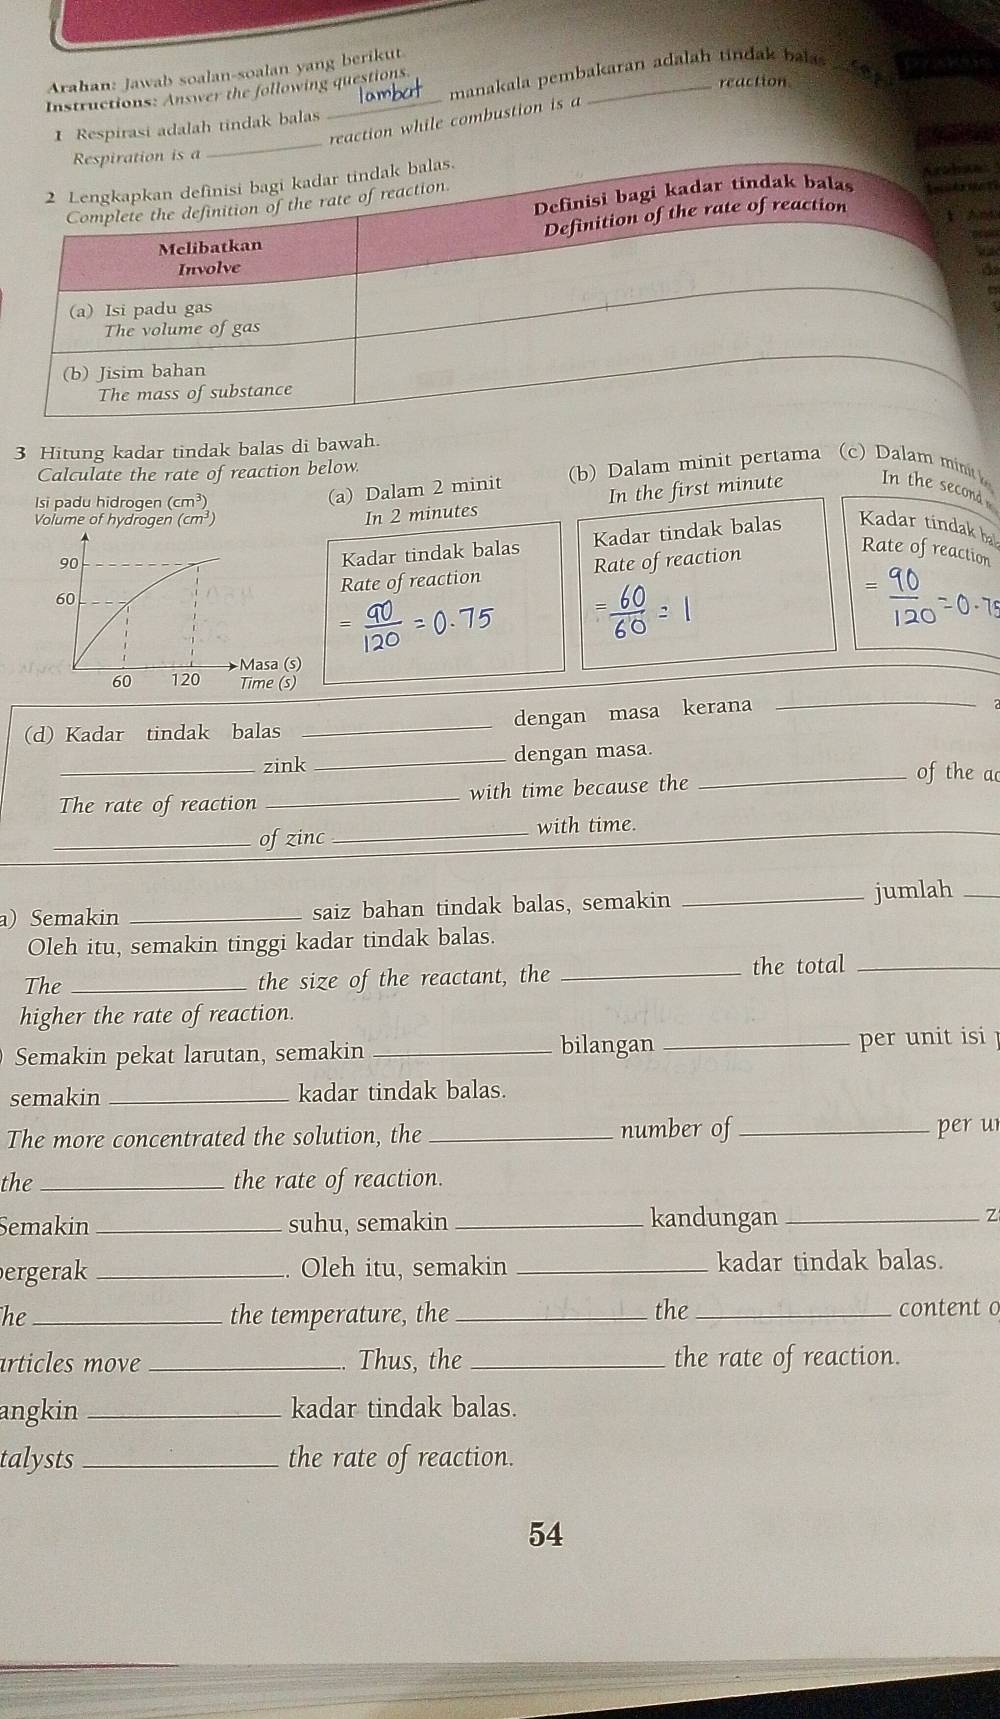 Arahan: Jawab soalan-soalan yang berikut.
Instructions: Answer the following questions.
1 Respirasi adalah tindak balas lambat manakala pembakaran adalah tindak balas
Respiration is a ____ reaction while combustion is a ____ reaction.
2 Lengkapkan definisi bagi kadar tindak balas.
Complete the definition of the rate of reaction.
Melibatkan
Involve
Definisi bagi kadar tindak balas
Definition of the rate of reaction
(a) Isi padu gas
The volume of gas
(b) Jisim bahan
The mass of substance
3 Hitung kadar tindak balas di bawah.
Calculate the rate of reaction below.
Isi padu hidrogen (cm³)
Volume of hydrogen (cm³)
90
60
60 120
Masa (s)
Time (s)
(a) Dalam 2 minit
In 2 minutes
Kadar tindak balas
Rate of reaction
= 90/120 = 0.75
(b) Dalam minit pertama
In the first minute
Kadar tindak balas
Rate of reaction
= 60/60 = 1
(c) Dalam minit
In the second
Kadar tindak
Rate of reaction
= 90/120 = 0.75
(d) Kadar tindak balas ____ dengan masa kerana ____
____ zink ____ dengan masa.
The rate of reaction ____ with time because the ____ of the
____ of zinc ____ with time.
a) Semakin ____ saiz bahan tindak balas, semakin ____ jumlah ____
Oleh itu, semakin tinggi kadar tindak balas.
The ____ the size of the reactant, the ____ the total ____
higher the rate of reaction.
) Semakin pekat larutan, semakin ____ bilangan ____ per unit isi
semakin ____ kadar tindak balas.
The more concentrated the solution, the ____ number of ____ per
the ____ the rate of reaction.
Semakin ____ suhu, semakin ____ kandungan ____
ergerak ____. Oleh itu, semakin ____ kadar tindak balas.
he ____ the temperature, the ____ the ____ content
articles move ____. Thus, the ____ the rate of reaction.
angkin ____ kadar tindak balas.
talysts ____ the rate of reaction.
54